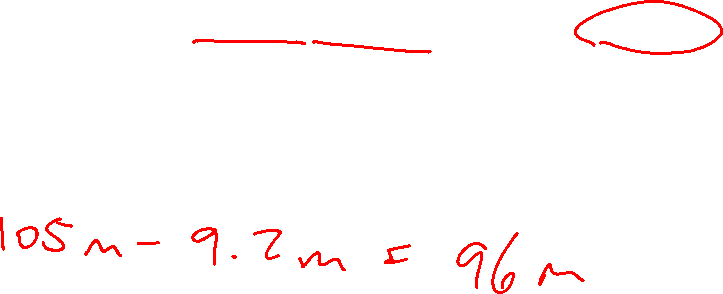 105m - 9.2m = 96m